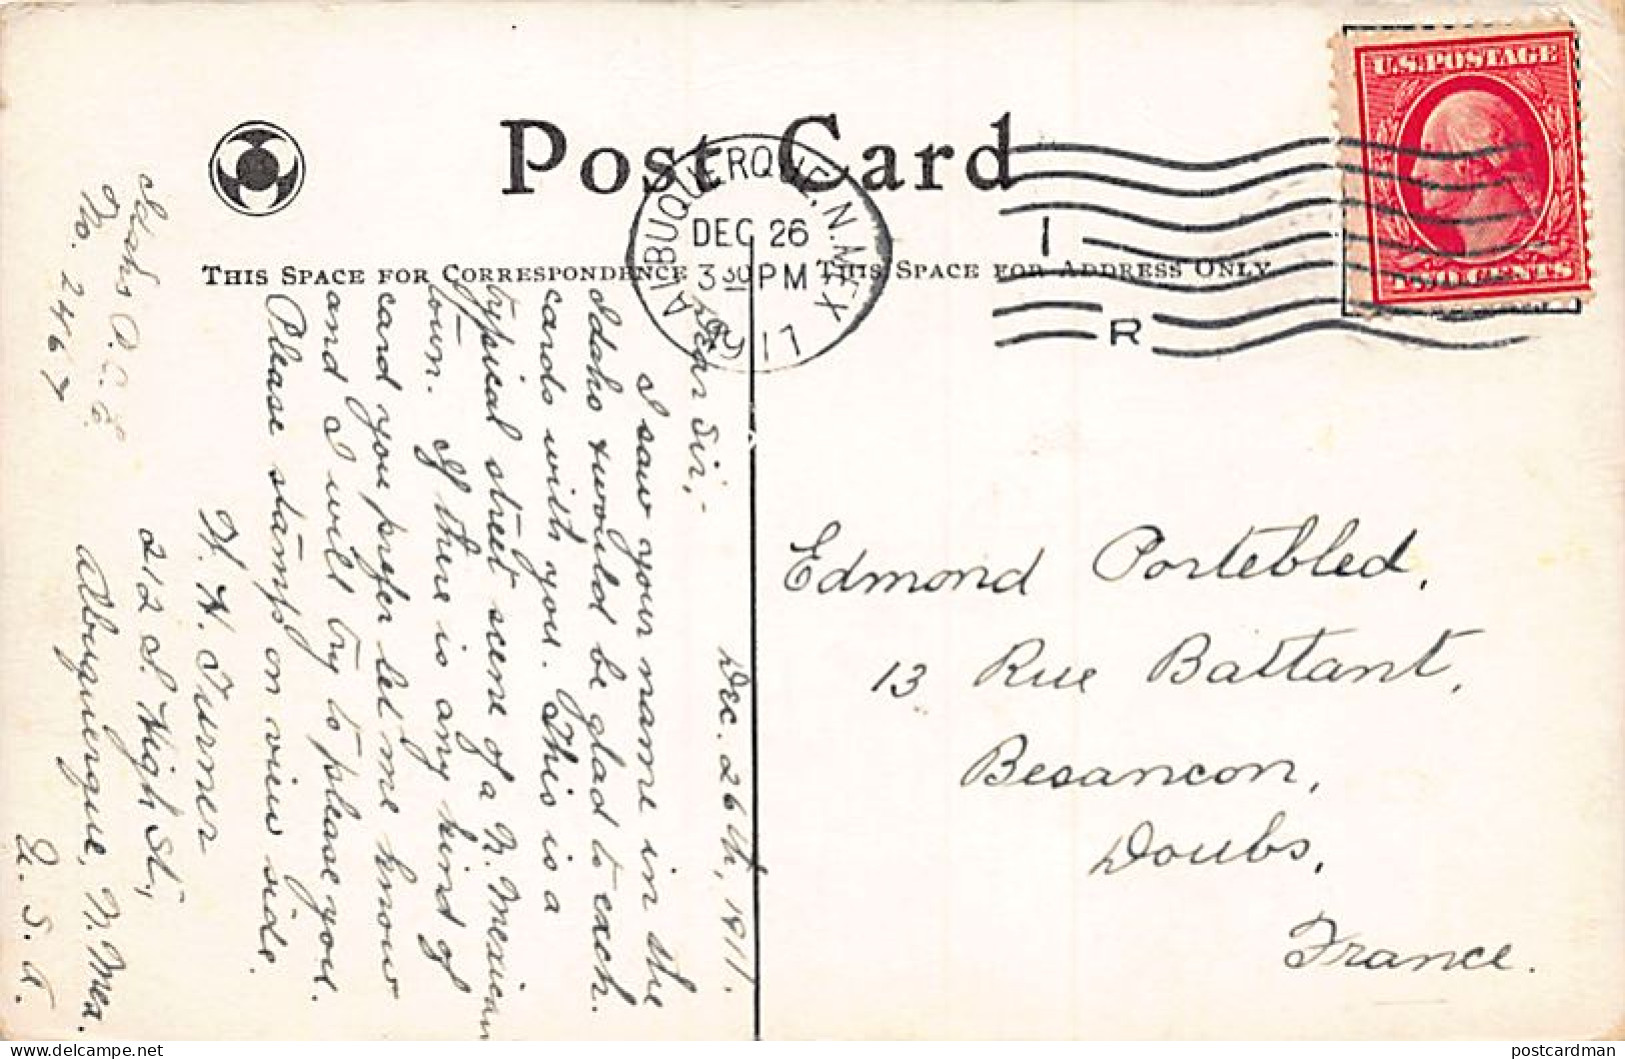 Post Card
THIS SPACE FOR CORRESPONDENCE
THIS SPACE FOR ADDRESS ONLY
ALBUQUERQUE, N. MEX
DEC 26
3 30 PM
1911
I
R
U.S. POSTAGE
TWO CENTS
Dec. 26th, 1911.
Dear Sir,-
I saw your name in the
Idaho & would be glad to exch.
cards with you. This is a
typical street scene of a N. Mexican
town. If there is any kind of
card you prefer let me know
and I will try to please you.
Please stamps on view side.
H. Turner
212 S. High St.,
Albuquerque, N. Mex.
U. S. A.
Idaho P. C. E.
No. 2467
Edmond Portebled,
13 Rue Battant,
Besancon,
Doubs,
France.
delcampe.net
postcardman